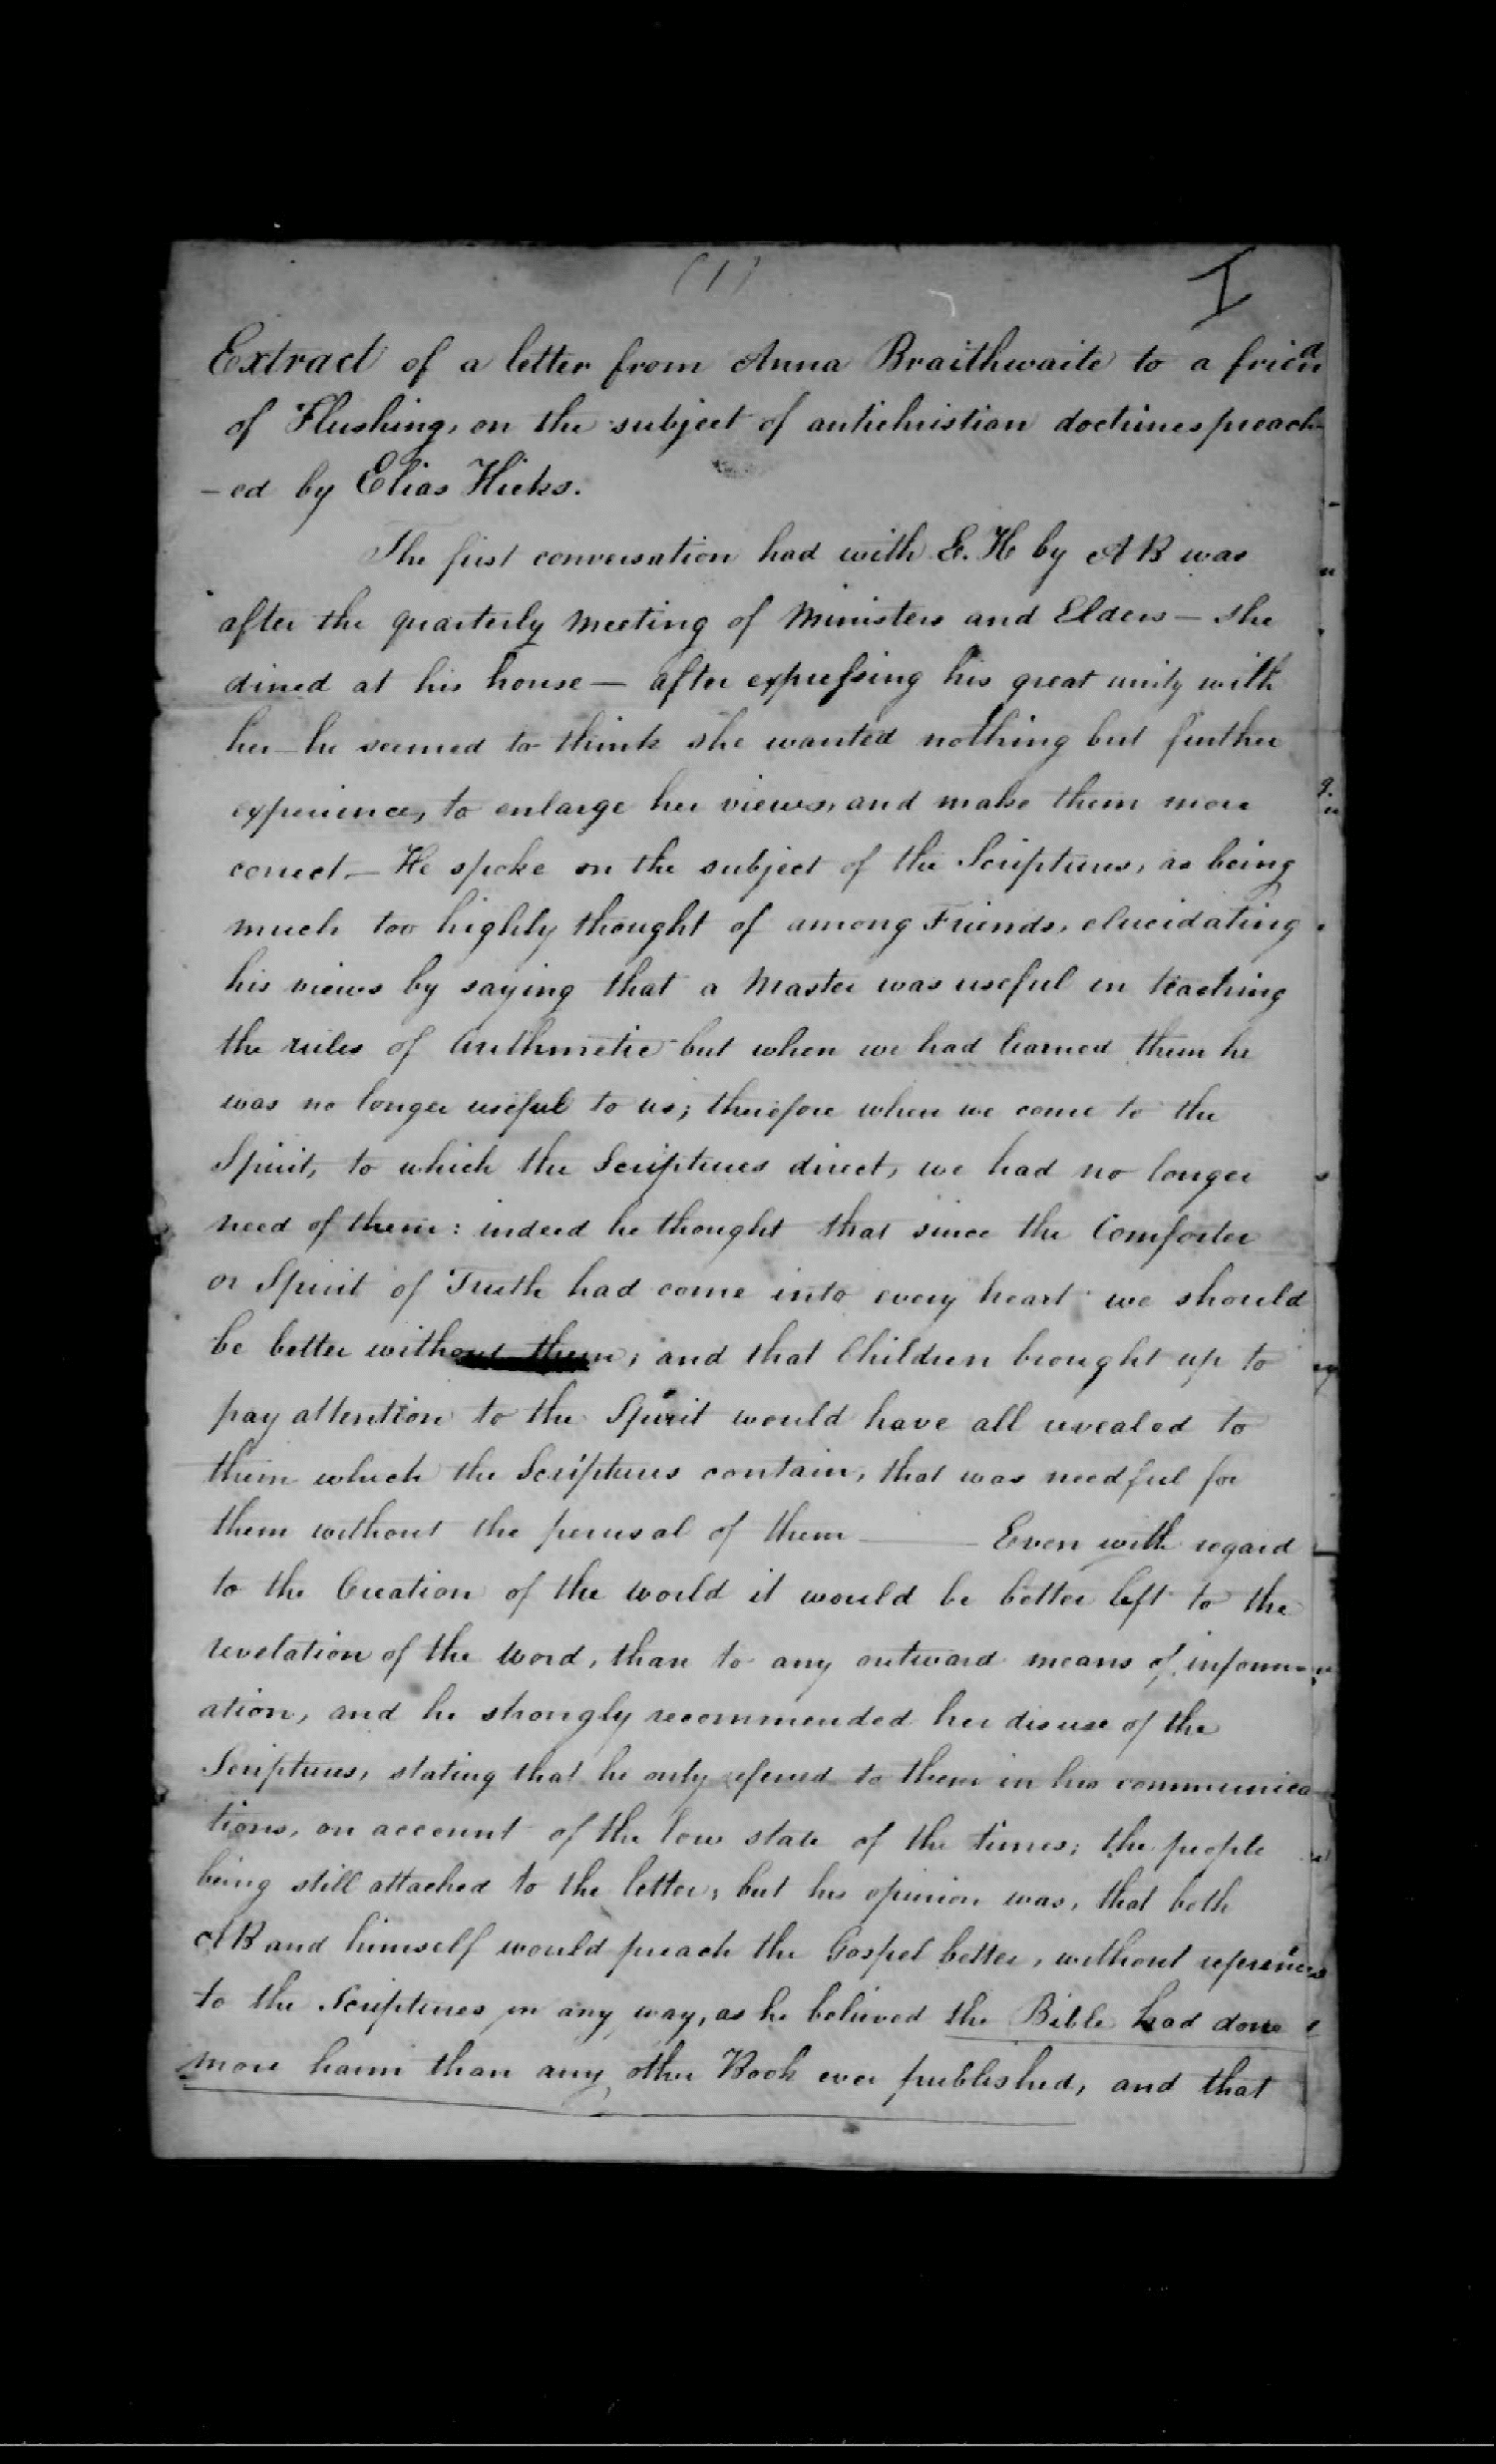 (1)
I
Extract of a letter from Anna Braithwaite to a friend
of Flushing, on the subject of antichristian doctrines preach-
-ed by Elias Hicks.
The first conversation had with E. H by A B was
after the quarterly Meeting of Ministers and Elders — she
dined at his house — after expressing his great unity with
her — he seemed to think she wanted nothing but further
experience, to enlarge her views, and make them more
correct — He spoke on the subject of the Scriptures, as being
much too highly thought of among Friends, elucidating
his views by saying that a Master was useful in teaching
the rules of Arithmetic but when we had learned them he
was no longer useful to us; therefore when we come to the
Spirit, to which the Scriptures direct, we had no longer
need of them: indeed he thought that since the Comforter
or Spirit of Truth had come into every heart we should
be better without them; and that Children brought up to
pay attention to the Spirit would have all revealed to
them which the Scriptures contain, that was needful for
them without the perusal of them — Even with regard
to the Creation of the world it would be better left to the
revelation of the word, than to any outward means of inform-
ation, and he strongly recommended her disuse of the
Scriptures, stating that he only refered to them in his communica
tions, on account of the low state of the times; the people
being still attached to the letter; but his opinion was, that both
A B and himself would preach the Gospel better, without reference
to the Scriptures in any way, as he believed the Bible had done
more harm than any other Book ever published, and that